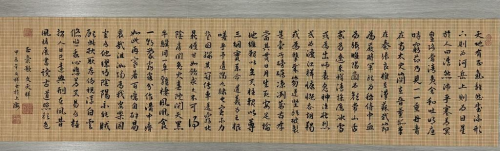 天地有正氣雜然賦流形
下則为河岳上則为日星
於人曰浩然沛乎塞蒼冥
皇路當清夷含和吐明庭
時窮節乃見一一垂丹青
在齊太史簡在晉董狐筆
在秦張良椎在漢蘇武節
为嚴將軍頭为嵇侍中血
为張睢陽齒为顏常山舌
或为遼東帽清操厲冰雪
或为出師表鬼神泣壯烈
或为渡江楫慷慨吞胡羯
或为擊賊笏逆豎頭破裂
是氣所磅礴凜烈萬古存
當其貫日月生死安足論
地維賴以立天柱賴以尊
三綱實繫命道義为之根
嗟予遘陽九隸也實不力
楚囚纓其冠傳車送窮北
鼎鑊甘如飴求之不可得
陰房闃鬼火春院閟天黑
牛驥同一皂雞棲鳳凰食
一朝蒙霧露分作溝中瘠
如此再寒暑百沴自辟易
哀哉沮洳場为我安樂國
豈有他繆巧陰陽不能賊
顧此耿耿存仰視浮雲白
悠悠我心悲蒼天曷有極
哲人日已遠典刑在夙昔
風檐展書讀古道照顏色
正氣歌 文天祥